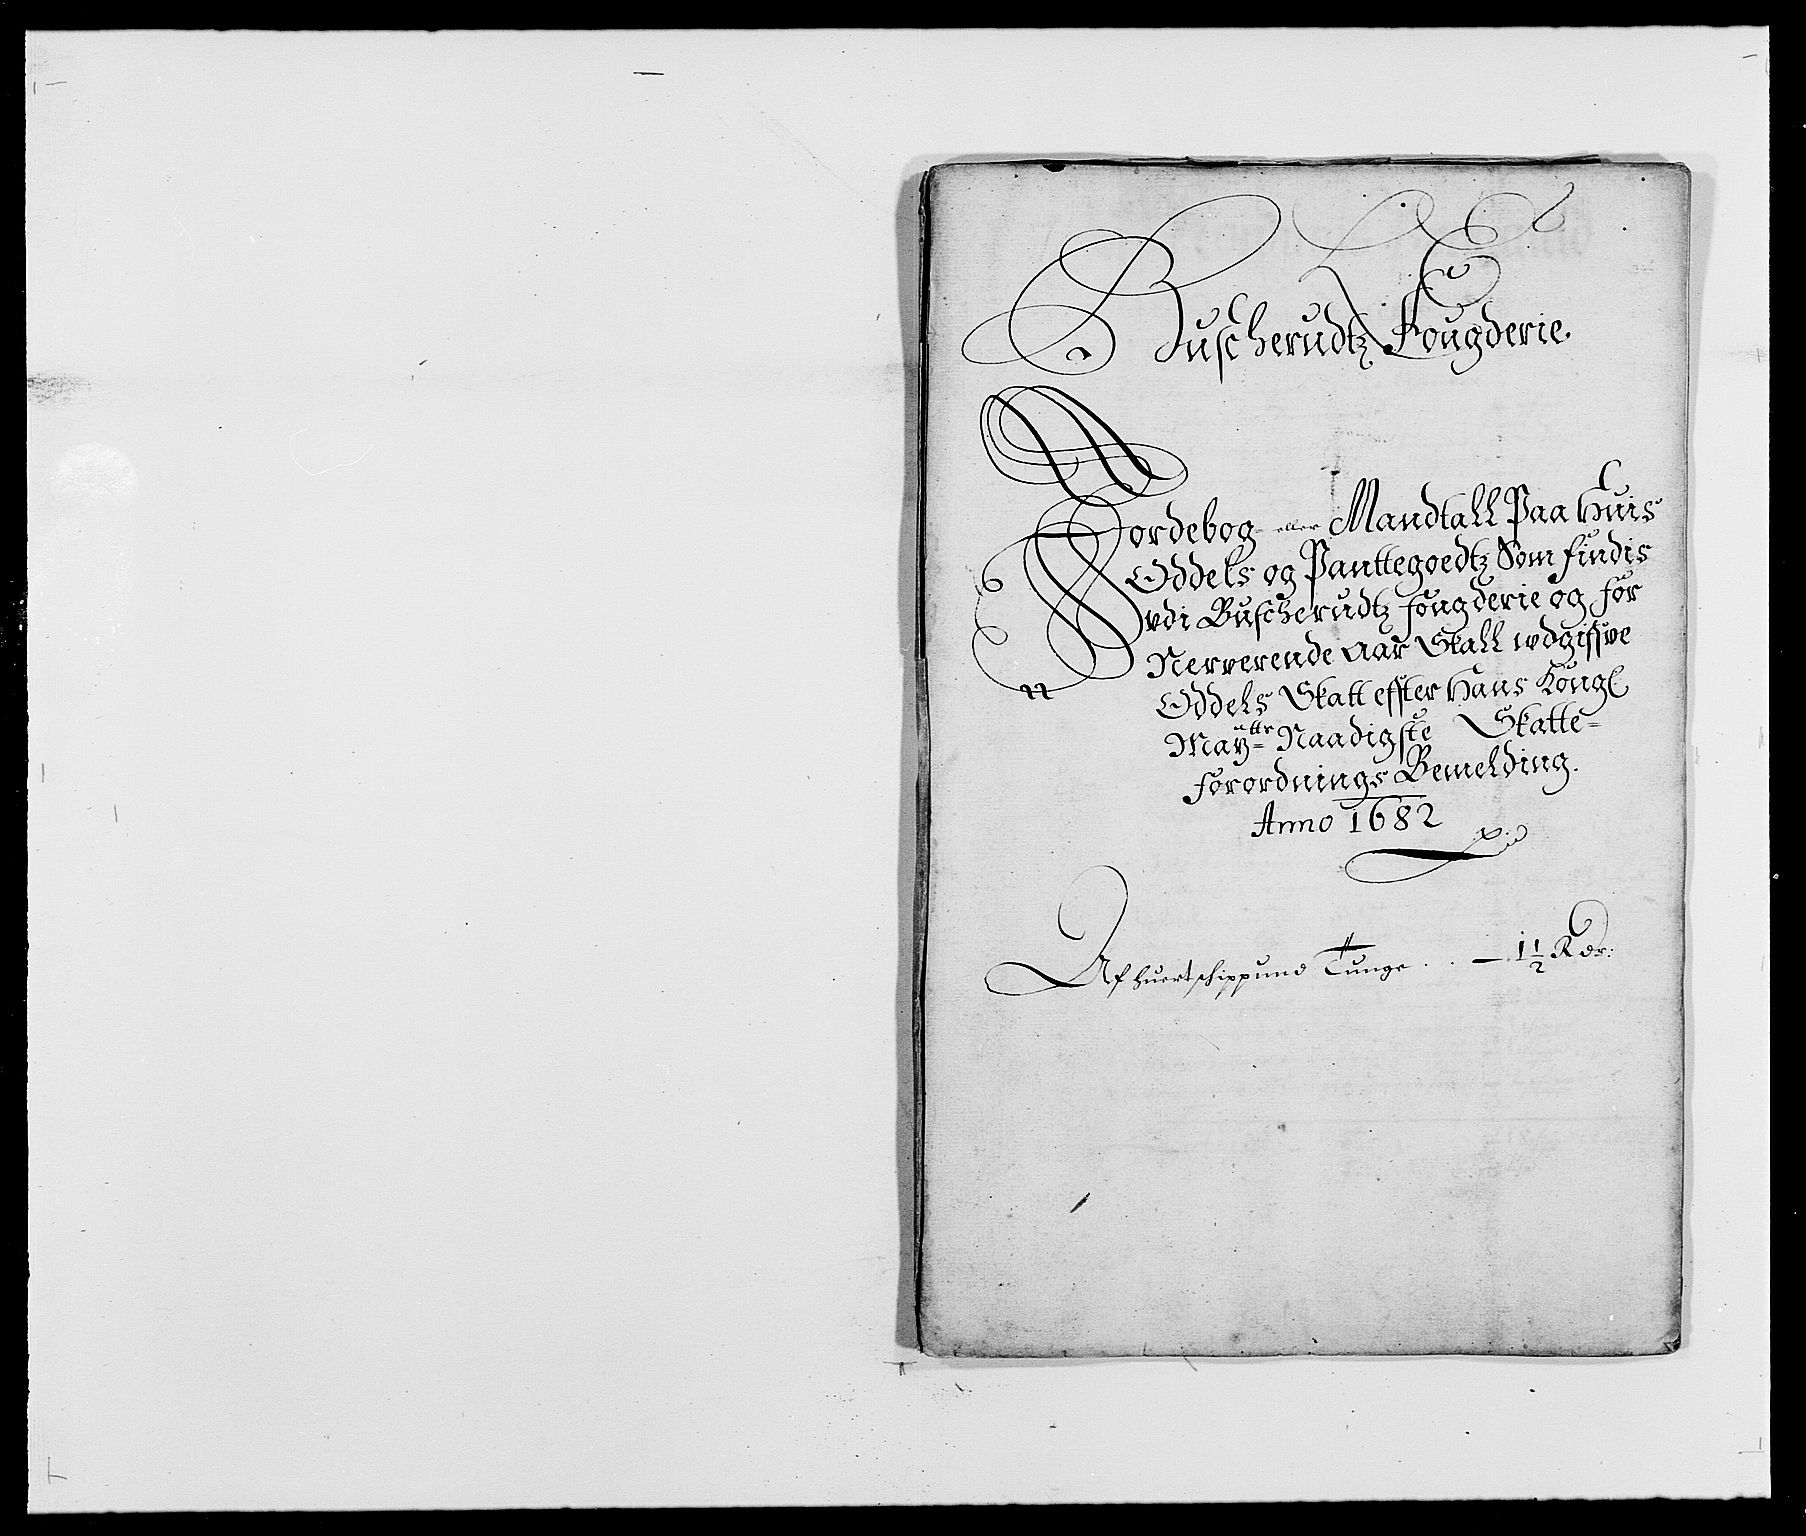 Buscherudtz Fougderie.
Jordebog eller Mandtall Paa huis
Oddels og Panttegoedtz Som findis
vdi Buscherudtz fougderie og for
Nerverende aar Skall wdgiffve
Oddels Skatt effter hans Kongl
May:ttr Naadigste Skatte=
forordnings Bemelding.
Anno 1682
Af huert schippund Tunge . . — 1 1/2 Rdr: